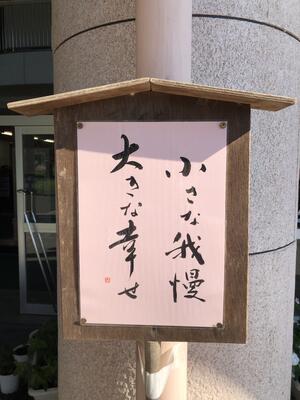 小さな我慢
大きな幸せ